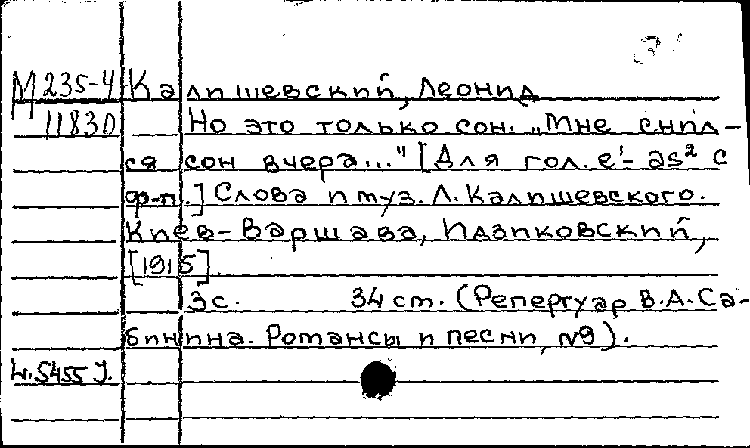 М 235-4 Калишевский, Леонид
11830 Но это только сон. „Мне снил-
ся сон вчера..." [Для гол. e¹- as² с
ф-п.] Слова и муз. Л. Калишевского.
Киев-Варшава, Идзиковский,
[1915]
3 с. 34 cm. (Репертуар В.А.Са-
бинина. Романсы и песни, №9).
L.5455 J.